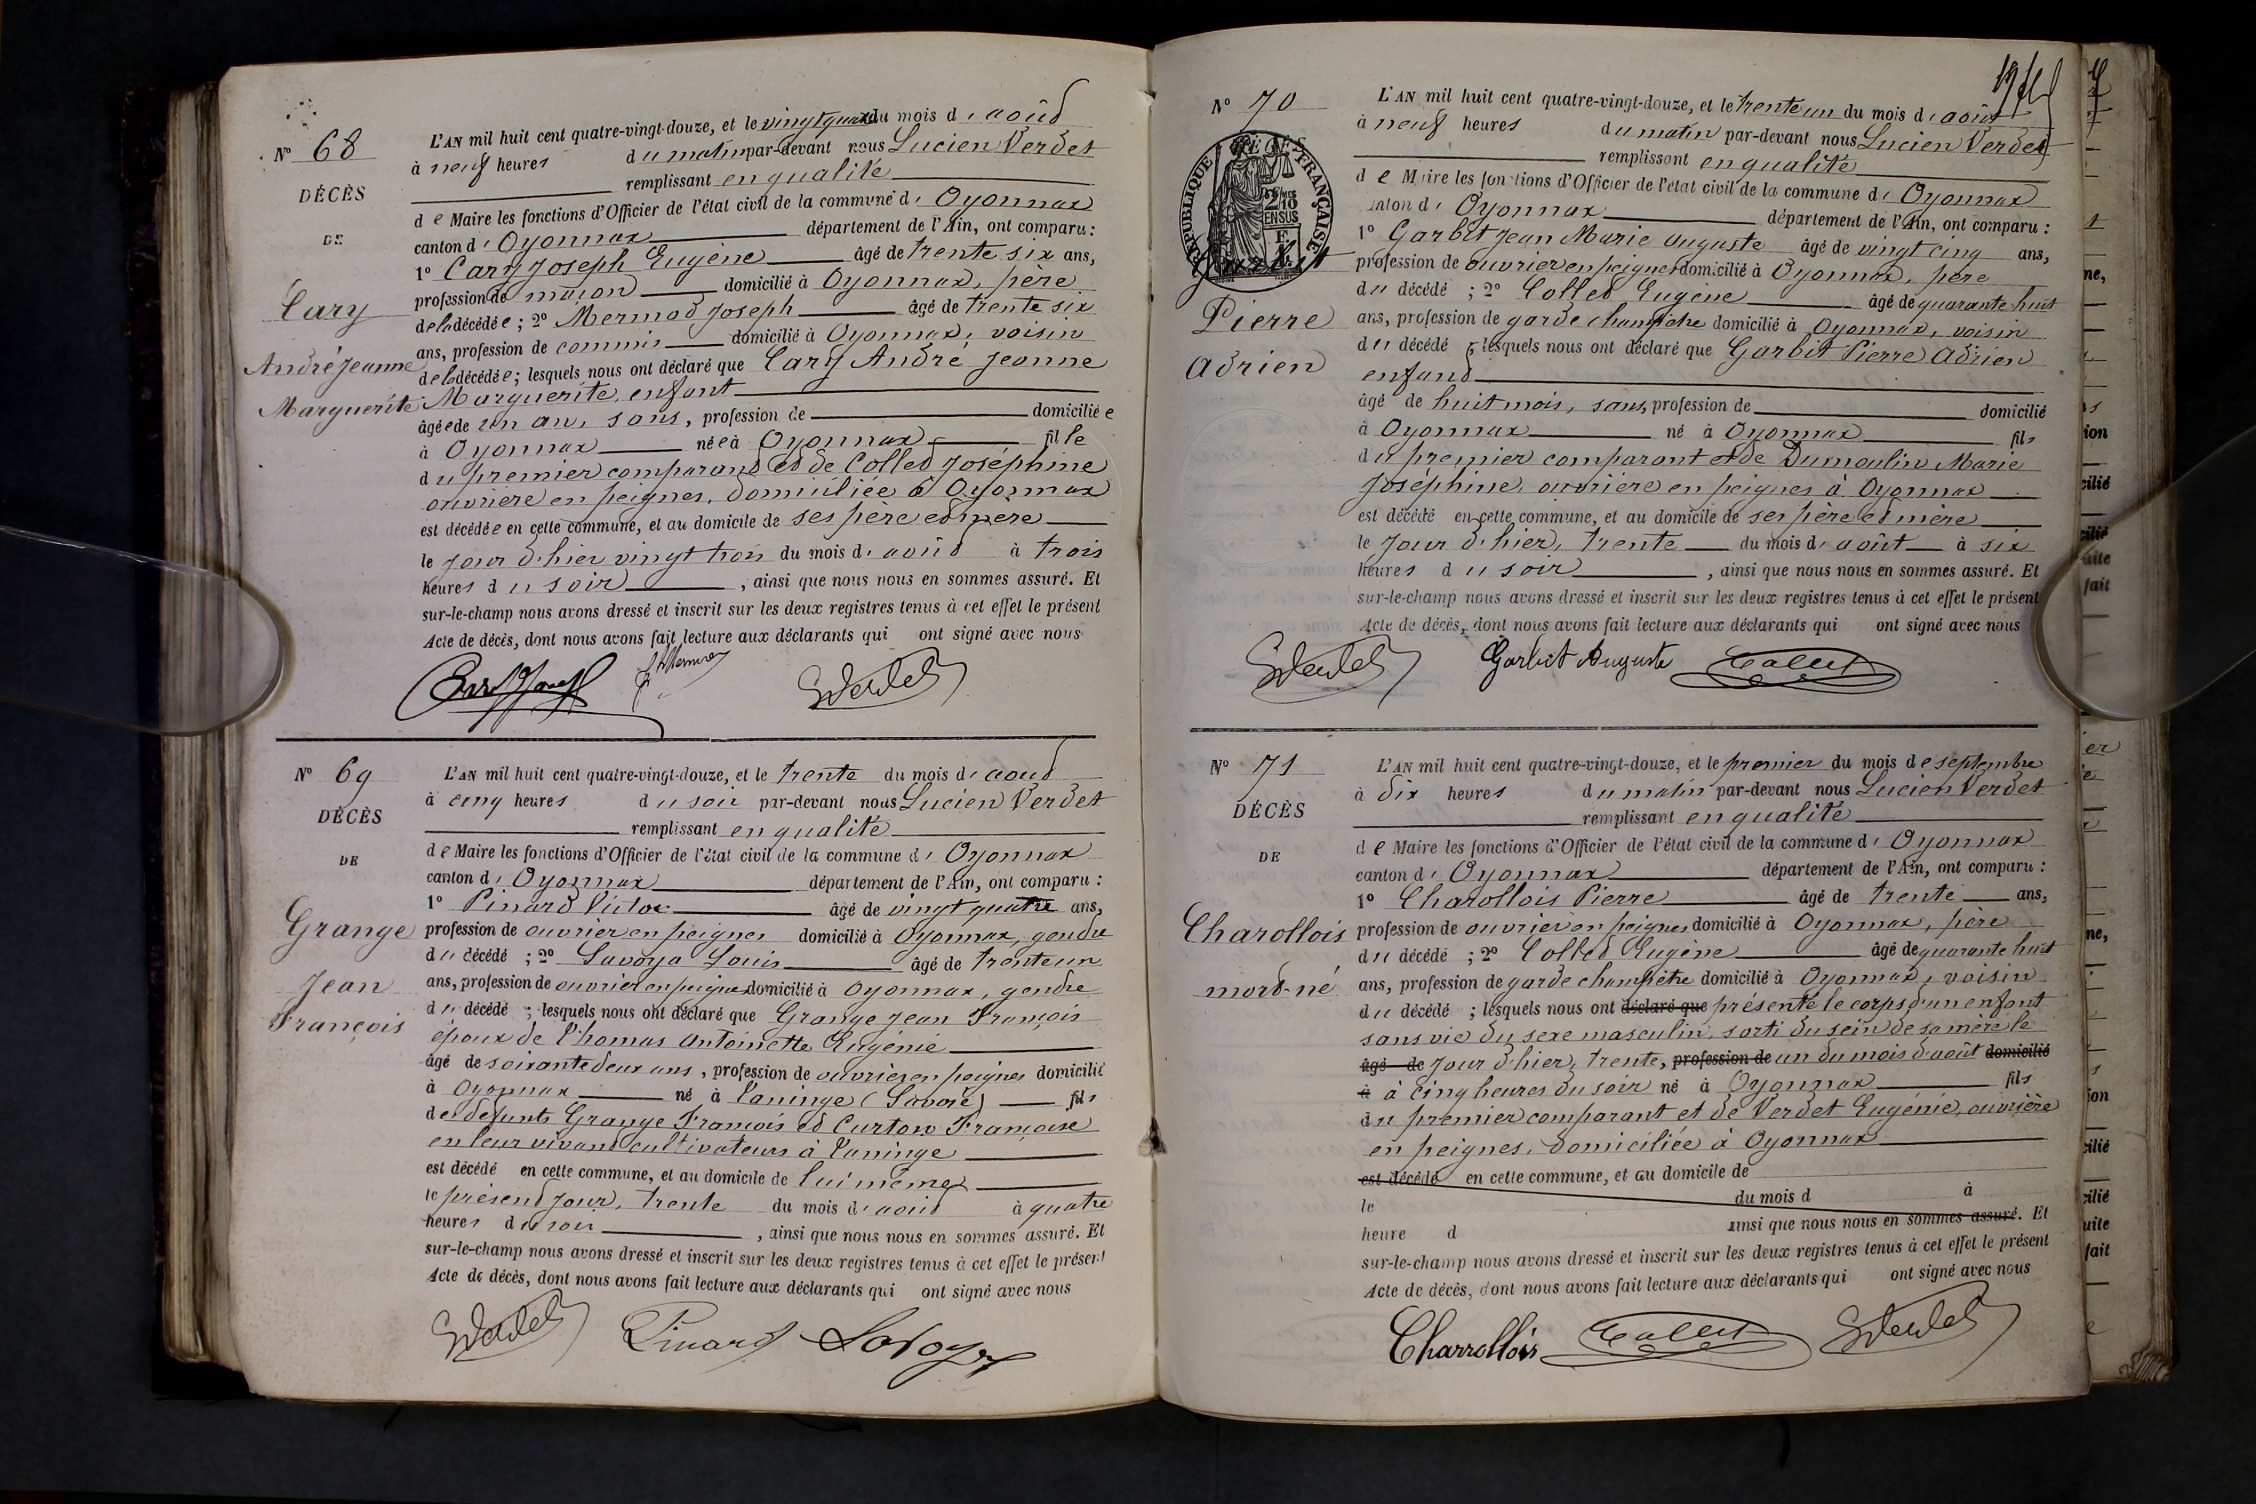 N° 68
DÉCÈS
DE
Cary
André Jeanne
Marguerite
L'AN mil huit cent quatre-vingt-douze, et le vingt quatre du mois d'août
à neuf heures du matin par-devant nous Lucien Verdet
remplissant en qualité
de Maire les fonctions d'Officier de l'état civil de la commune d'Oyonnax
canton d'Oyonnax département de l'Ain, ont comparu :
1° Cary Joseph Eugène âgé de trente six ans,
profession de maçon domicilié à Oyonnax, père
de la décédée ; 2° Mermod Joseph âgé de trente six
ans, profession de commis domicilié à Oyonnax, voisin
de la décédée ; lesquels nous ont déclaré que Cary André Jeanne
Marguerite, enfant
âgée de un an, sans, profession de domiciliée
à Oyonnax née à Oyonnax fille
du premier comparant et de Collet Joséphine
ouvrière en peignes, domiciliée à Oyonnax
est décédée en cette commune, et au domicile de ses père et mère
le jour d'hier vingt trois du mois d'août à trois
heures du soir , ainsi que nous nous en sommes assuré. Et
sur-le-champ nous avons dressé et inscrit sur les deux registres tenus à cet effet le présent
Acte de décès, dont nous avons fait lecture aux déclarants qui ont signé avec nous
N° 69
DÉCÈS
DE
Grange
Jean
François
L'AN mil huit cent quatre-vingt-douze, et le trente du mois d'août
à cinq heures du soir par-devant nous Lucien Verdet
remplissant en qualité
de Maire les fonctions d'Officier de l'état civil de la commune d'Oyonnax
canton d'Oyonnax département de l'Ain, ont comparu :
1° Pinard Victor âgé de vingt quatre ans,
profession de ouvrier en peignes domicilié à Oyonnax, gendre
du décédé ; 2° Savoye Louis âgé de trente un
ans, profession de ouvrier en peignes domicilié à Oyonnax, gendre
du décédé ; lesquels nous ont déclaré que Grange Jean François
époux de Thomas Antoinette Eugénie
âgé de soixante deux ans, profession de ouvrier en peignes domicilié
à Oyonnax né à Taninge (Savoie) fils
de défunts Grange François et Curton Françoise
en leur vivant cultivateurs à Taninge
est décédé en cette commune, et au domicile de lui même
le présent jour, trente du mois d'août à quatre
heures du soir , ainsi que nous nous en sommes assuré. Et
sur-le-champ nous avons dressé et inscrit sur les deux registres tenus à cet effet le présent
Acte de décès, dont nous avons fait lecture aux déclarants qui ont signé avec nous
Pinard Savoye
N° 70
RÉPUBLIQUE FRANÇAISE
Pierre
Adrien
L'AN mil huit cent quatre-vingt-douze, et le trente un du mois d'août
à neuf heures du matin par-devant nous Lucien Verdet
remplissant en qualité
de Maire les fonctions d'Officier de l'état civil de la commune d'Oyonnax
canton d'Oyonnax département de l'Ain, ont comparu :
1° Garbit Jean Marie Auguste âgé de vingt cinq ans,
profession de ouvrier en peignes domicilié à Oyonnax, père
du décédé ; 2° Collet Eugène âgé de quarante huit
ans, profession de garde champêtre domicilié à Oyonnax, voisin
du décédé ; lesquels nous ont déclaré que Garbit Pierre Adrien
enfant
âgé de huit mois, sans, profession de domicilié
à Oyonnax né à Oyonnax fils
du premier comparant et de Dumoulin Marie
Joséphine, ouvrière en peignes à Oyonnax
est décédé en cette commune, et au domicile de ses père et mère
le jour d'hier, trente du mois d'août à six
heures du soir , ainsi que nous nous en sommes assuré. Et
sur-le-champ nous avons dressé et inscrit sur les deux registres tenus à cet effet le présent
Acte de décès, dont nous avons fait lecture aux déclarants qui ont signé avec nous
Garbit Auguste Collet
N° 71
DÉCÈS
DE
Charollois
mort-né
L'AN mil huit cent quatre-vingt-douze, et le premier du mois de septembre
à dix heures du matin par-devant nous Lucien Verdet
remplissant en qualité
de Maire les fonctions d'Officier de l'état civil de la commune d'Oyonnax
canton d'Oyonnax département de l'Ain, ont comparu :
1° Charollois Pierre âgé de trente ans,
profession de ouvrier en peignes domicilié à Oyonnax, père
du décédé ; 2° Collet Eugène âgé de quarante huit
ans, profession de garde champêtre domicilié à Oyonnax, voisin
du décédé ; lesquels nous ont déclaré que présenté le corps d'un enfant
sans vie du sexe masculin, sorti du sein de sa mère le
âgé de jour d'hier, trente, profession de un du mois d'août domicilié
à à cinq heures du soir né à Oyonnax fils
du premier comparant et de Verdet Eugénie, ouvrière
en peignes, domiciliée à Oyonnax
est décédé en cette commune, et au domicile de
le du mois d à
heure d ainsi que nous nous en sommes assuré. Et
sur-le-champ nous avons dressé et inscrit sur les deux registres tenus à cet effet le présent
Acte de décès, dont nous avons fait lecture aux déclarants qui ont signé avec nous
Charrollois Collet